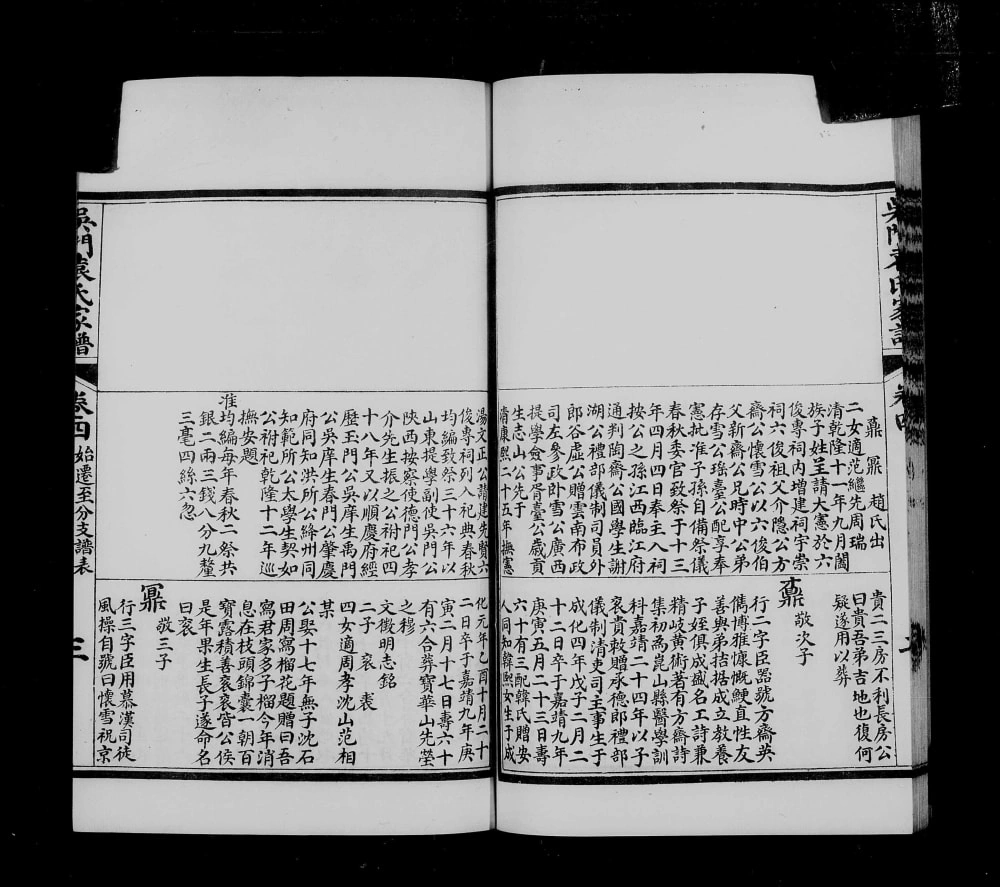 吳門袁氏家譜
卷四
鼐 鼏 趙氏出
二女適范繼先周瑞
清乾隆十一年九月闔
族子姓呈請大憲於六
俊專祠內增建祠宇崇
祠六俊祖父介隱公方
齋公懷雪公以六俊伯
父新齋公兄時中公弟
存雪公瑤臺公配享奉
憲批准子孫自備祭儀
春秋委官致祭于十三
年四月四日奉主入祠
按公之孫江西臨江府
通判陶齋公國學生謝
湖公禮部儀制司員外
郎谷虛公贈雲南布政
司左參政卧雪公廣西
提學僉事胥臺公歲貢
生志山公先于
清康熙二十五年撫憲
貴二三房不利長房公
曰貴吾弟吉地也復何
疑遂用以葬
鼒 敬次子
行二字臣器號方齋英
儁博雅慷慨鯁直性友
善與弟拮据成立教養
子姪俱成盛名工詩兼
精岐黃術著有方齋詩
集初為崑山縣醫學訓
科嘉靖二十四年以子
袠貴敕贈承德郎禮部
儀制清吏司主事生于
成化四年戊子二月二
十二日卒于嘉靖九年
庚寅五月二十三日壽
六十有三配韓氏贈安
人同知韓熙女生于成
湯文正公請建先賢六
俊專祠列入祀典春秋
均編致祭三十六年以
山東提學副使吳門公
陝西按察使德門公孝
介先生振之公祔祀四
十八年又以順慶府經
歷玉門公吳庠生禹門
公吳庠生春門公肇慶
府同知洪所公絳州同
知範所公太學生契如
公祔祀乾隆十二年巡
撫安題
准均編每年春秋二祭共
銀二兩三錢八分九釐
三毫四絲六忽
化元年乙酉十月二十
二日卒于嘉靖九年庚
寅二月十七日壽六十
有六合葬寶華山先塋
之穆
文徵明志銘
二子 袞 袠
四女適周孝沈山范相
某
公娶十七年無子沈石
田周寫榴花題贈曰吾
寫君家多子榴今年消
息在枝頭錦囊一朝百
寶露積善袞袞皆公侯
是年果生長子遂命名
曰袞
鼏 敬三子
行三字臣用慕漢司徒
風操自號曰懷雪祝京
吳門袁氏家譜
卷四 始遷至分支譜表
三